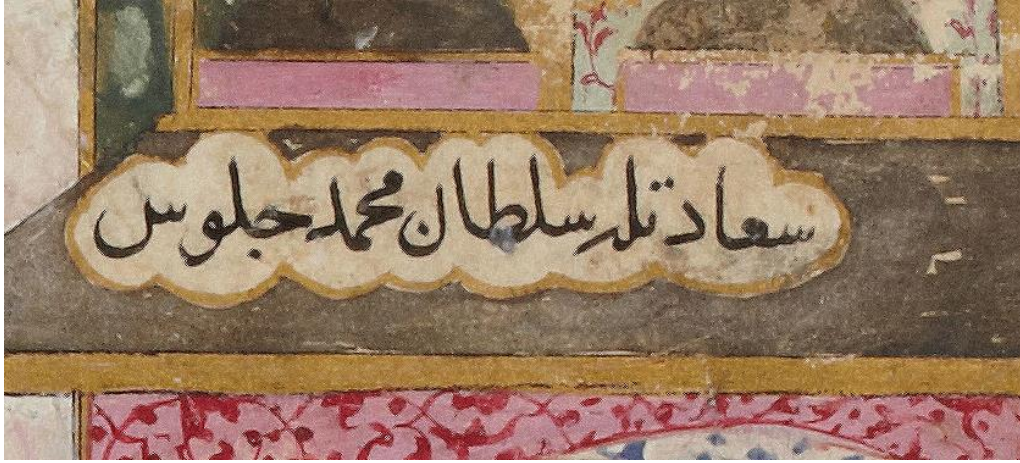 سعادتله سلطان محمد جلوس